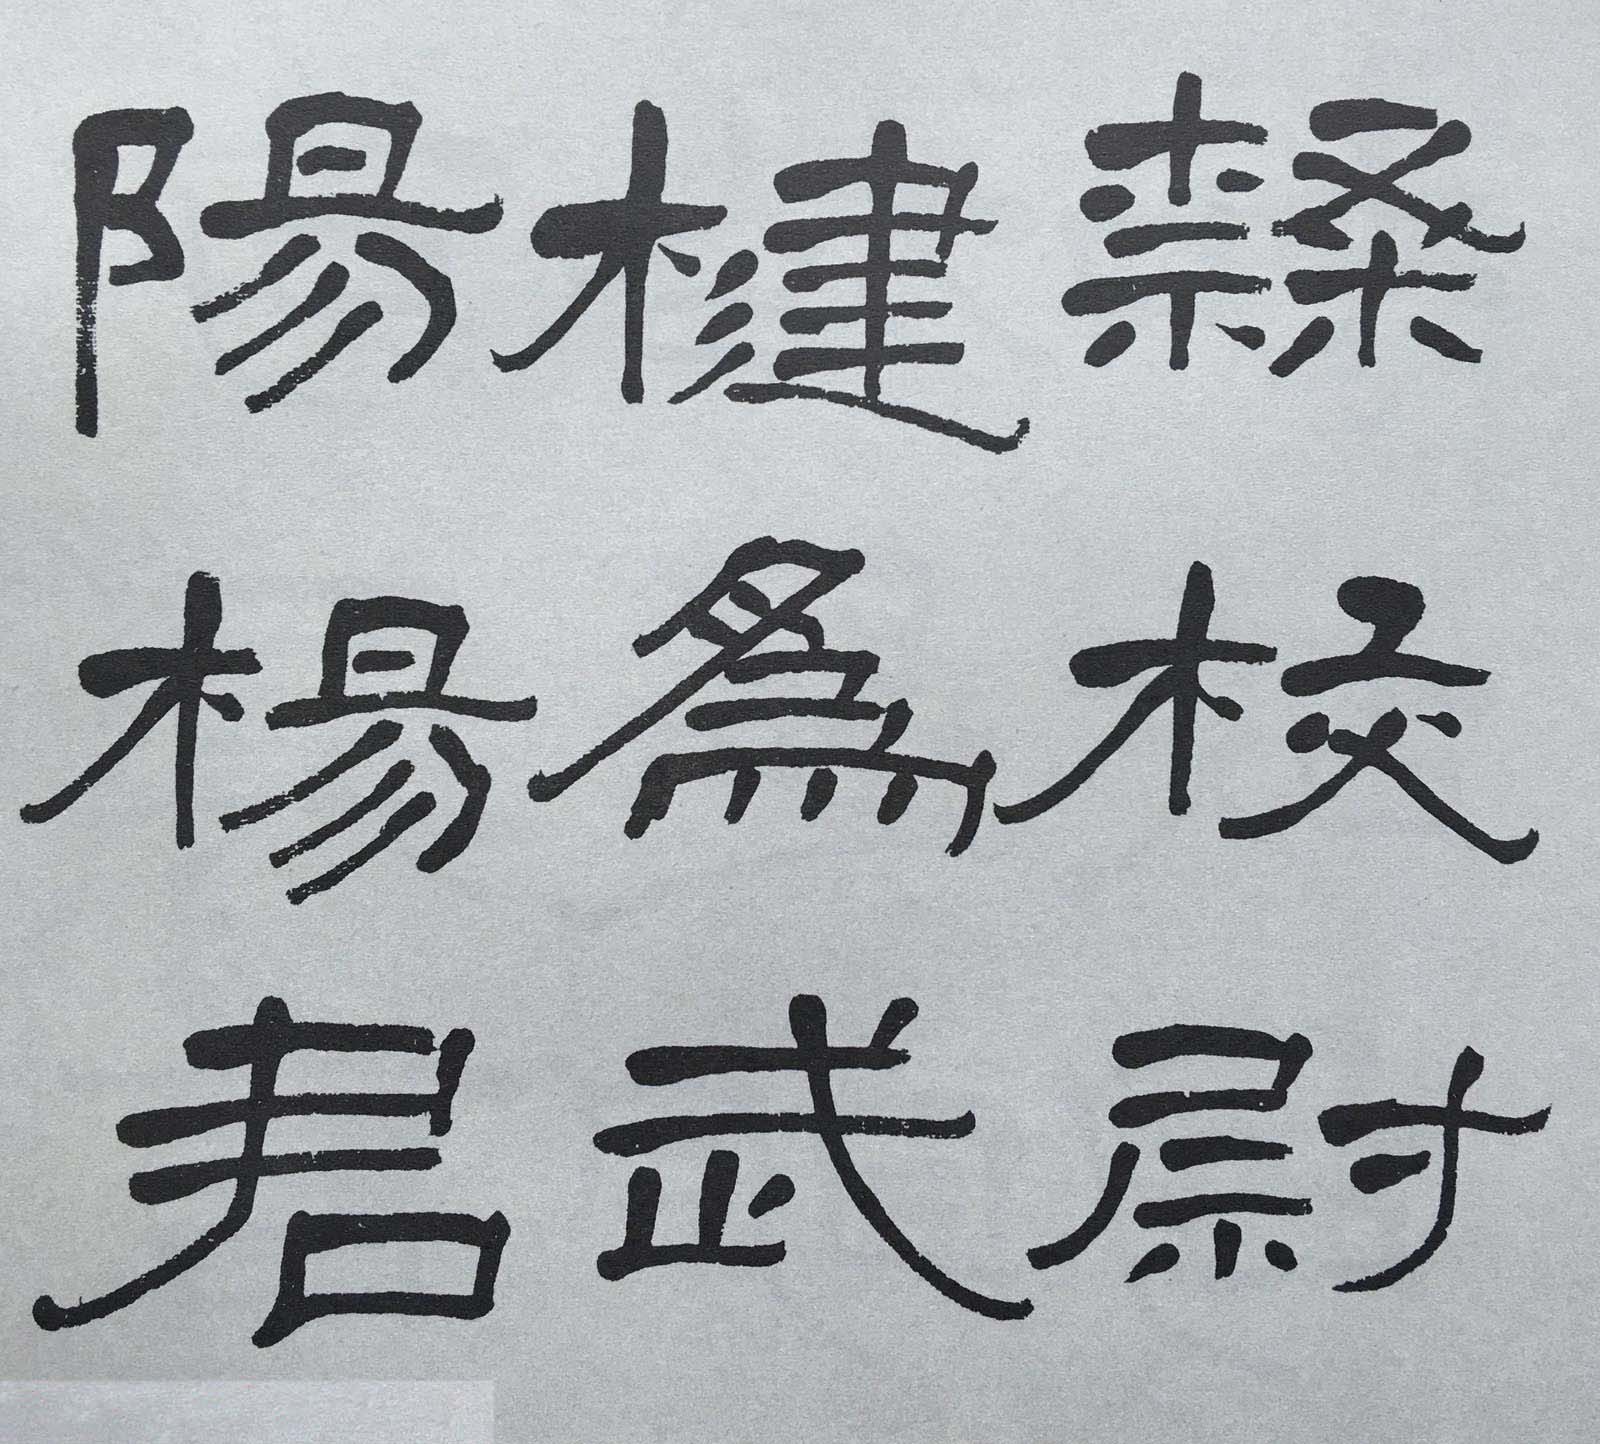 隸校尉
楗爲武
陽楊君